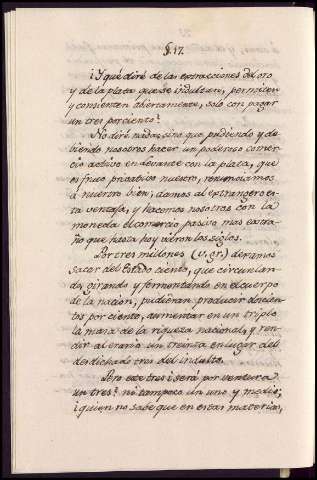 §. 17.
¿Y qué diré de las extracciones del oro
y de la plata que se indultan, permiten
y consienten abiertamente, solo con pagar
un tres por ciento?
No diré nada, sino que pudiendo y de-
biendo nosotros hacer un poderoso comer-
cio activo en Levante con la plata, que
es fruto privativo nuestro, renunciamos
a nuestro bien; damos al extrangero es-
ta ventaja, y hacemos nosotros con la
moneda el comercio pasivo mas extra-
ño que hasta hoy vieron los siglos.
Por tres millones (v. gr.) dexamos
sacar del Estado ciento, que circulan-
do, girando y fermentando en el cuerpo
de la nacion, pudieran producir doscien-
tos por ciento, aumentar en un triplo
la masa de la riqueza nacional, y ren-
dir al erario un treinta en lugar del
desdichado tres del indulto.
Pero este tres ¿será por ventura
un tres? ni tampoco un uno y medio;
¿quien no sabe que en estas materias,